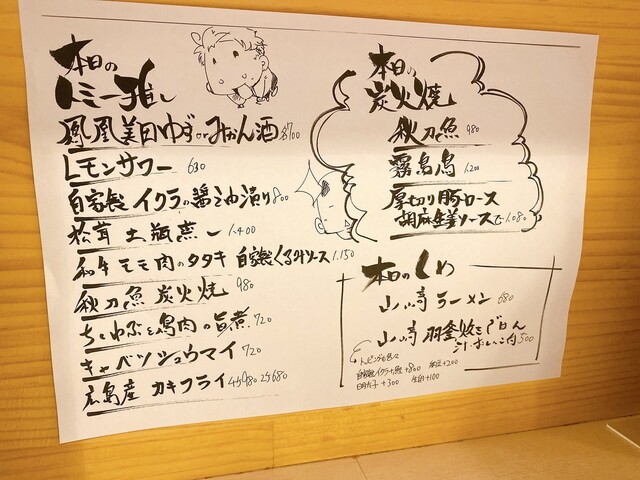 本日の
トミー推し
鳳凰美田ゆずorみかん酒 各700
レモンサワー 630
自家製イクラの醤油漬け 800
松茸土瓶蒸し 1,400
和牛モモ肉のタタキ 自家製くるみソース 1,150
秋刀魚 炭火焼 980
ちくわぶと鳥肉の旨煮 720
キャベツシュウマイ 720
広島産 カキフライ
本日の
炭火焼
秋刀魚 980
霧島鳥 1,200
厚切り豚ロース
胡麻生姜ソースで 1,080
本日の〆
山崎ラーメン 680
山崎羽釜炊きごはん
汁、おしんこ付 500
トッピング色々
自家製イクラ +800
明太子 +300